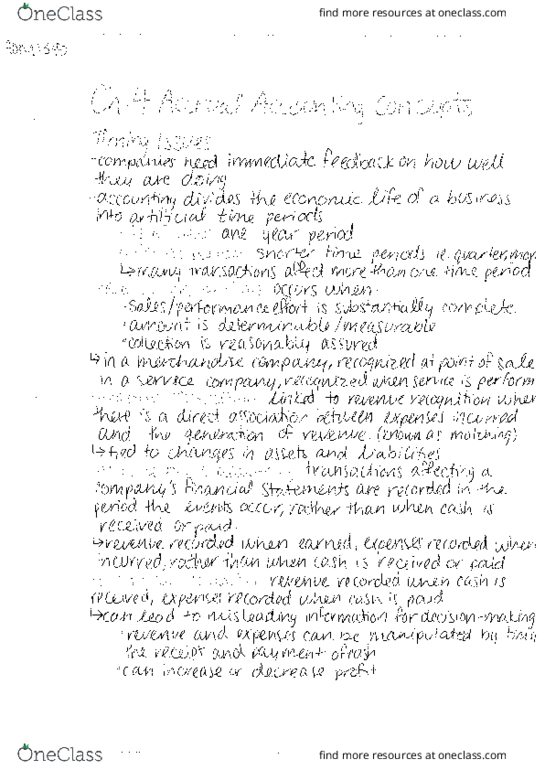 OneClass
find more resources at oneclass.com
Ch.4 Accrual Accounting Concepts
Timing Issues
-companies need immediate feedback on how well
they are doing
-accounting divides the economic life of a business
into artificial time periods
one year period
shorter time periods ie. quarter, mon
↳many transactions affect more than one time period
occurs when
•sales/performance effort is substantially complete
•amount is determinable/measurable
•collection is reasonably assured
↳in a merchandise company, recognized at point of sale
in a service company, recognized when service is perform
linked to revenue recognition when
there is a direct association between expenses incurred
and the generation of revenue. (known as matching)
↳tied to changes in assets and liabilities
transactions affecting a
company's financial statements are recorded in the
period the events occur, rather than when cash is
received or paid.
↳revenue recorded when earned, expenses recorded when
incurred, rather than when cash is received or paid
revenue recorded when cash is
received, expenses recorded when cash is paid
↳can lead to misleading information for decision-making
•revenue and expenses can be manipulated by timi
the receipt and payment of cash
•can increase or decrease profit
OneClass
find more resources at oneclass.com